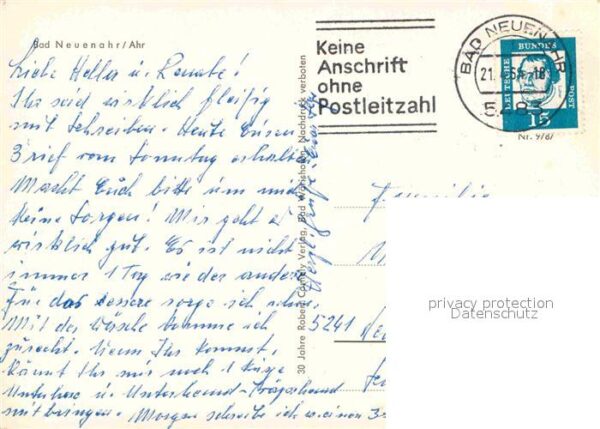 Bad Neuenahr/Ahr
Keine
Anschrift
ohne
Postleitzahl
BAD NEUENAHR
21.
548
DEUTSCHE BUNDESPOST
15
Nr. 9787
Liebe Hella u. Renate!
Ihr seid wirklich fleißig
mit Schreiben. Heute Euren
Brief vom Sonntag erhalten
Macht Euch bitte um mich
keine Sorgen! Mir geht es
wirklich gut. Es ist nicht
immer 1 Tag wie der andere
Für das bessere sorge ich schon.
Mit der Wäsche komme ich
zurecht. Wenn Ihr kommt,
könnt Ihr mir noch 1
Unterhose u. Unterhemd-Trägerhemd
mitbringen. Morgen schreibe ich
30 Jahre Robert Cornely Verlag, Bad Wörishofen, Nachdruck verboten
Herzl. Grüße
Familie
5241
privacy protection
Datenschutz